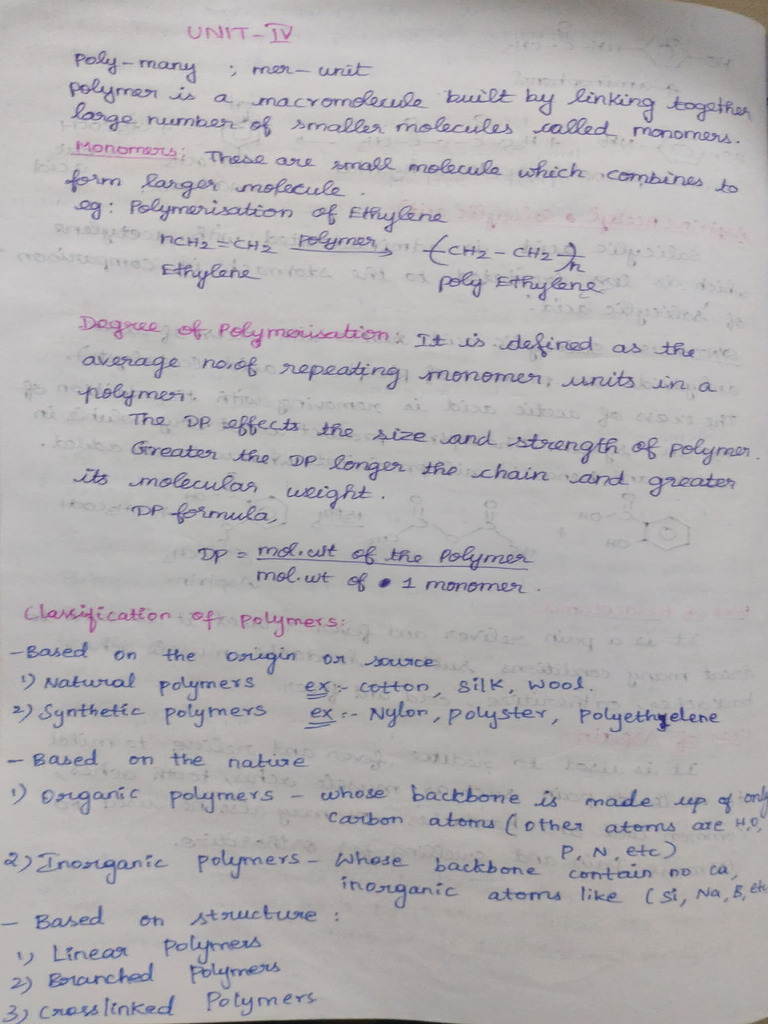 UNIT-IV
Poly-many ; mer-unit
Polymer is a macromolecule built by linking together
large number of smaller molecules called monomers.
Monomers: These are small molecule which combines to
form larger molecule.
eg: Polymerisation of Ethylene
nCH2=CH2 Polymer→ (CH2-CH2)n
Ethylene poly Ethylene
Degree of Polymerisation: It is defined as the
average no.of repeating monomer units in a
polymer.
The DP effects the size and strength of polymer.
Greater the DP longer the chain and greater
its molecular weight.
DP formula,
DP = mol.wt of the Polymer
mol.wt of 1 monomer.
Classification of polymers:
-Based on the origin or source
1) Natural polymers ex:- cotton, silk, wool.
2) Synthetic polymers ex:- Nylon, polyster, polyethyelene
- Based on the nature
1) Organic polymers - whose backbone is made up of only
carbon atoms (other atoms are H,O,
P, N, etc)
2) Inorganic polymers - Whose backbone contain no ca,
inorganic atoms like (Si, Na, B, etc
- Based on structure:
1) Linear Polymers
2) Branched Polymers
3) Crosslinked Polymers